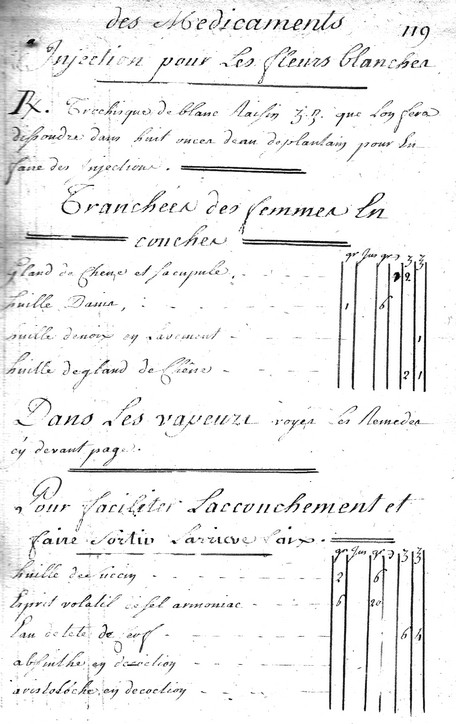 des Medicaments
119
Injection pour Les fleurs blanches
Rx. Trochisque de blanc Raisin ʒ.ij. que Lon fera
dissoudre dans huit onces deau deplantain pour En
faire des Injections.
Tranchées des femmes En
couches
gr Jus gr ℈ ʒ ℥
gland de Chene et sa cupule, 2
huille Danis, 1 6
huille denoix en Lavement 1
huille degland de Chêne 2 1
Dans Les vapeurs voyés Les Remedes
cy devant page.
Pour faciliter Laccouchement et
faire sortir Larriere faix.
gr Jus gr ℈ ʒ ℥
huille de succin 2 6
Esprit volatil de sel armoniac 6 20
Eau de tete de cerf 6 4
absinthe en decoction
aristoloche en decoction